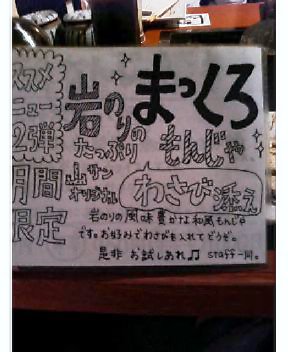 ススメ
ニュー
2弾
月間
限定
岩のり
たっぷりの
まっくろ
もんじゃ
山サン
オリジナル
わさび添え
岩のりの風味豊かな和風もんじゃ
です。お好みでわさびも入れてどうぞ。
是非 お試しあれ♫ staff一同。